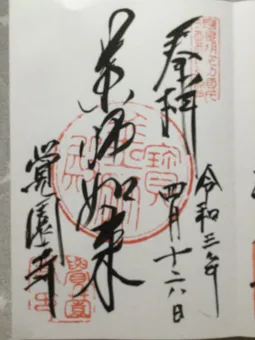 奉拝
令和三年
四月十六日
薬師如来
覺園寺